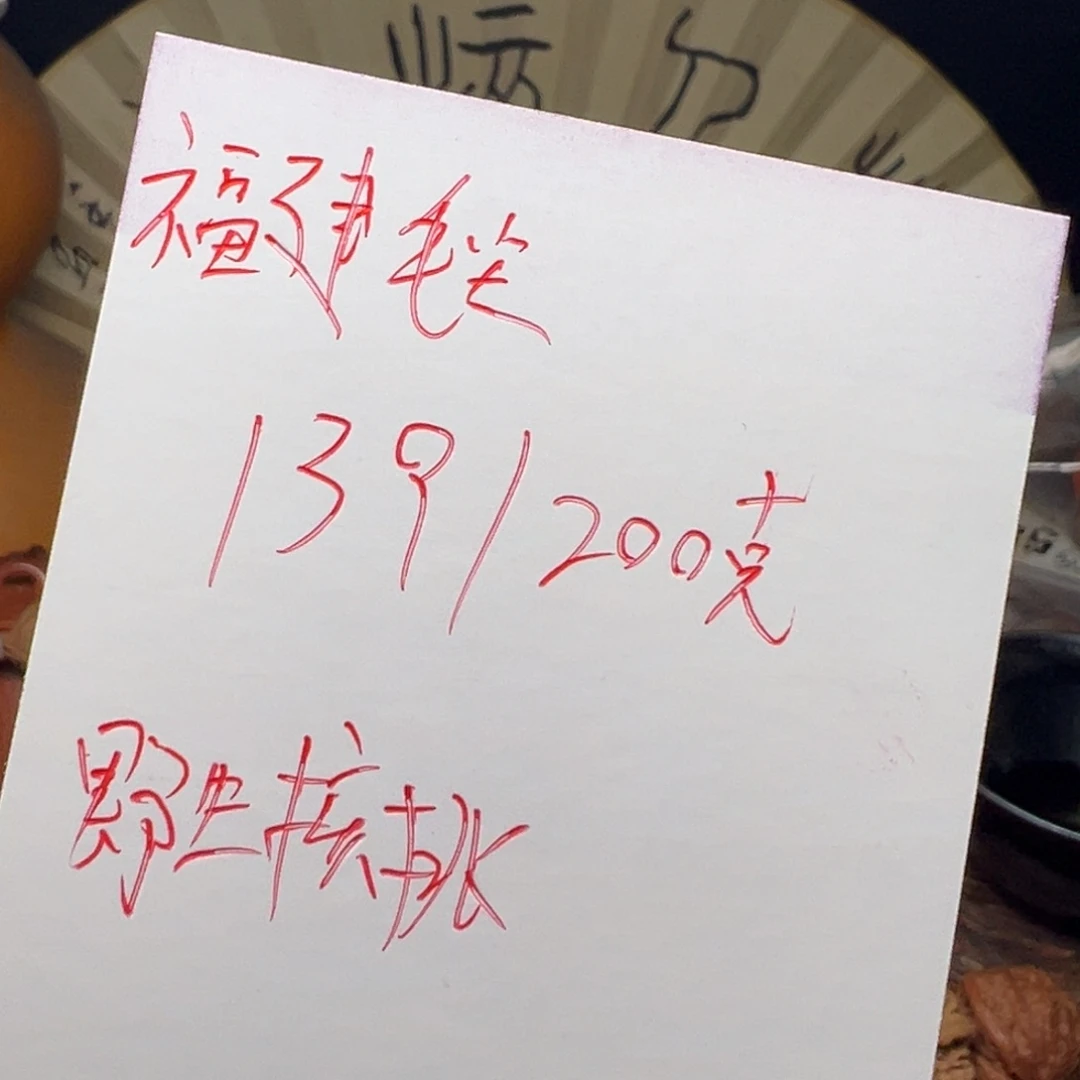 福建毛尖
139/200克
野生核桃